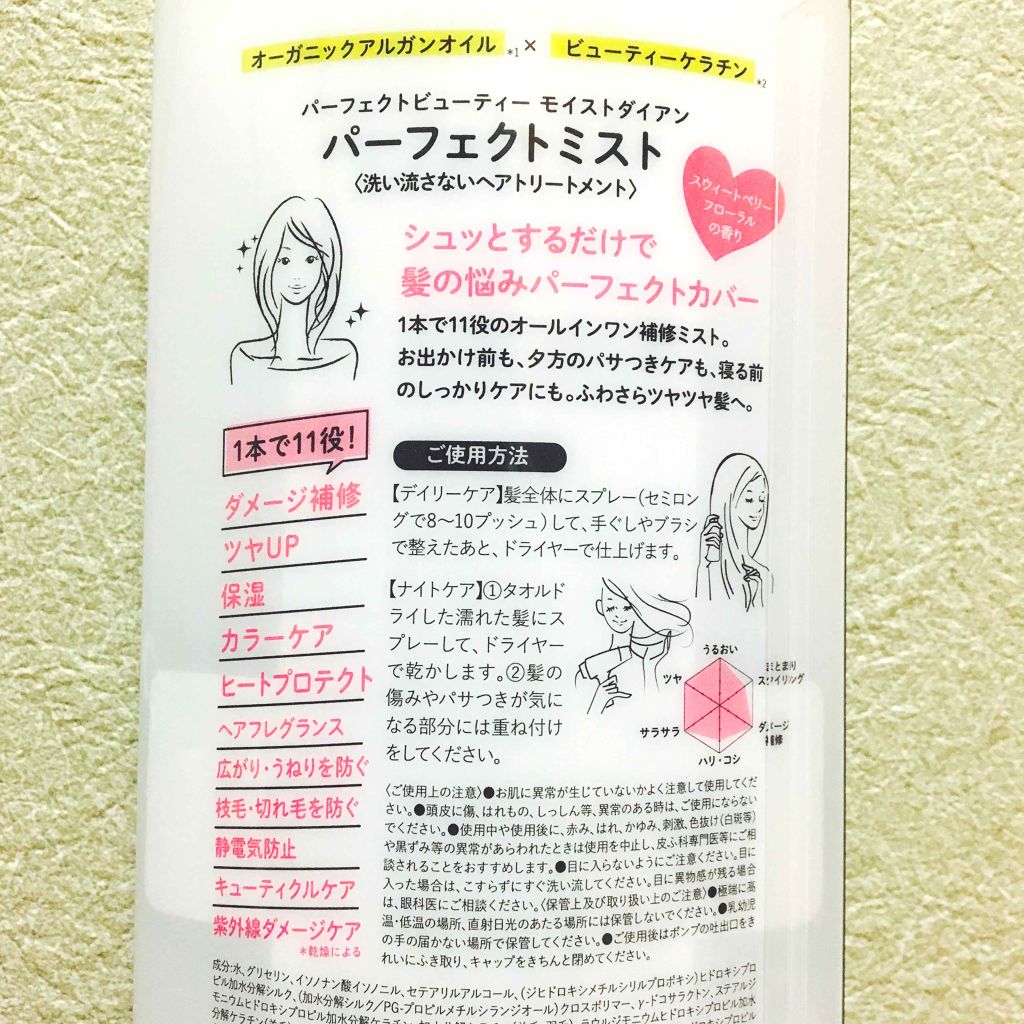 オーガニックアルガンオイル *1 × ビューティーケラチン *2
パーフェクトビューティー モイストダイアン
パーフェクトミスト
〈洗い流さないヘアトリートメント〉
スウィートベリー
フローラル
の香り
シュッとするだけで
髪の悩みパーフェクトカバー
1本で11役のオールインワン補修ミスト。
お出かけ前も、夕方のパサつきケアも、寝る前
のしっかりケアにも。ふわさらツヤツヤ髪へ。
1本で11役!
ダメージ補修
ツヤUP
保湿
カラーケア
ヒートプロテクト
ヘアフレグランス
広がり・うねりを防ぐ
枝毛・切れ毛を防ぐ
静電気防止
キューティクルケア
紫外線ダメージケア
*乾燥による
ご使用方法
【デイリーケア】髪全体にスプレー(セミロン
グで8〜10プッシュ)して、手ぐしやブラシ
で整えたあと、ドライヤーで仕上げます。
【ナイトケア】①タオルド
ライした濡れた髪にス
プレーして、ドライヤー
で乾かします。②髪の
傷みやパサつきが気に
なる部分には重ね付け
をしてください。
うるおい
まとまり
スタイリング
ダメージ
補修
ハリ・コシ
サラサラ
ツヤ
〈ご使用上の注意〉●お肌に異常が生じていないかよく注意して使用してくだ
さい。●頭皮に傷、はれもの、しっしん等、異常のある時は、ご使用にならない
でください。●使用中や使用後に、赤み、はれ、かゆみ、刺激、色抜け(白斑等)
や黒ずみ等の異常があらわれたときは使用を中止し、皮ふ科専門医等にご相
談されることをおすすめします。●目に入らないようにご注意ください。目に
入った場合は、こすらずにすぐ洗い流してください。目に異物感が残る場合
は、眼科医にご相談ください。〈保管上及び取り扱い上のご注意〉●極端に高
温・低温の場所、直射日光のあたる場所には保管しないでください。●乳幼児
の手の届かない場所で保管してください。●ご使用後はポンプの吐出口をき
れいにふき取り、キャップをきちんと閉めてください。
成分:水、グリセリン、イソノナン酸イソノニル、セテアリルアルコール、(ジヒドロキシメチルシリルプロポキシ)ヒドロキシプロ
ピル加水分解シルク、(加水分解シルク/PG-プロピルメチルシランジオール)クロスポリマー、γ-ドコサラクトン、ステアルジ
モニウムヒドロキシプロピル加水分解ケラチン
ラウルジモニウムヒドロキシプロピル加水